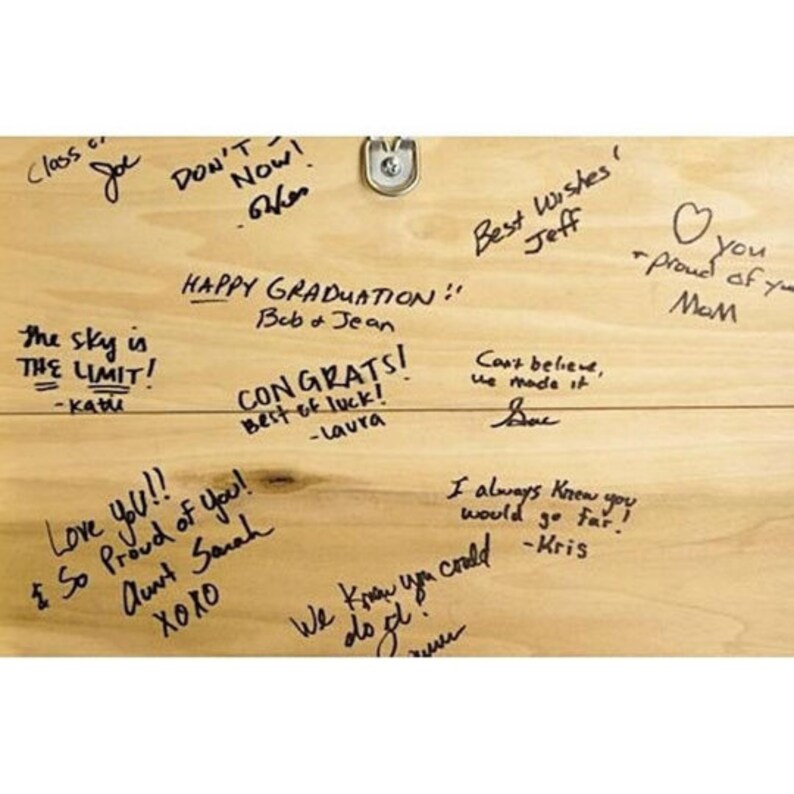 Class of
Joe
DON'T
NOW!
Best Wishes!
Jeff
♡ you
+ proud of you
MOM
HAPPY GRADUATION!!
Bob & Jean
The sky is
THE LIMIT!
-Katie
CONGRATS!
Best of luck!
-Laura
Can't believe,
we made it
Love you!!
& So Proud of You!
Aunt Sarah
XOXO
I always Knew you
would go far!
-Kris
We Knew you could
do it!